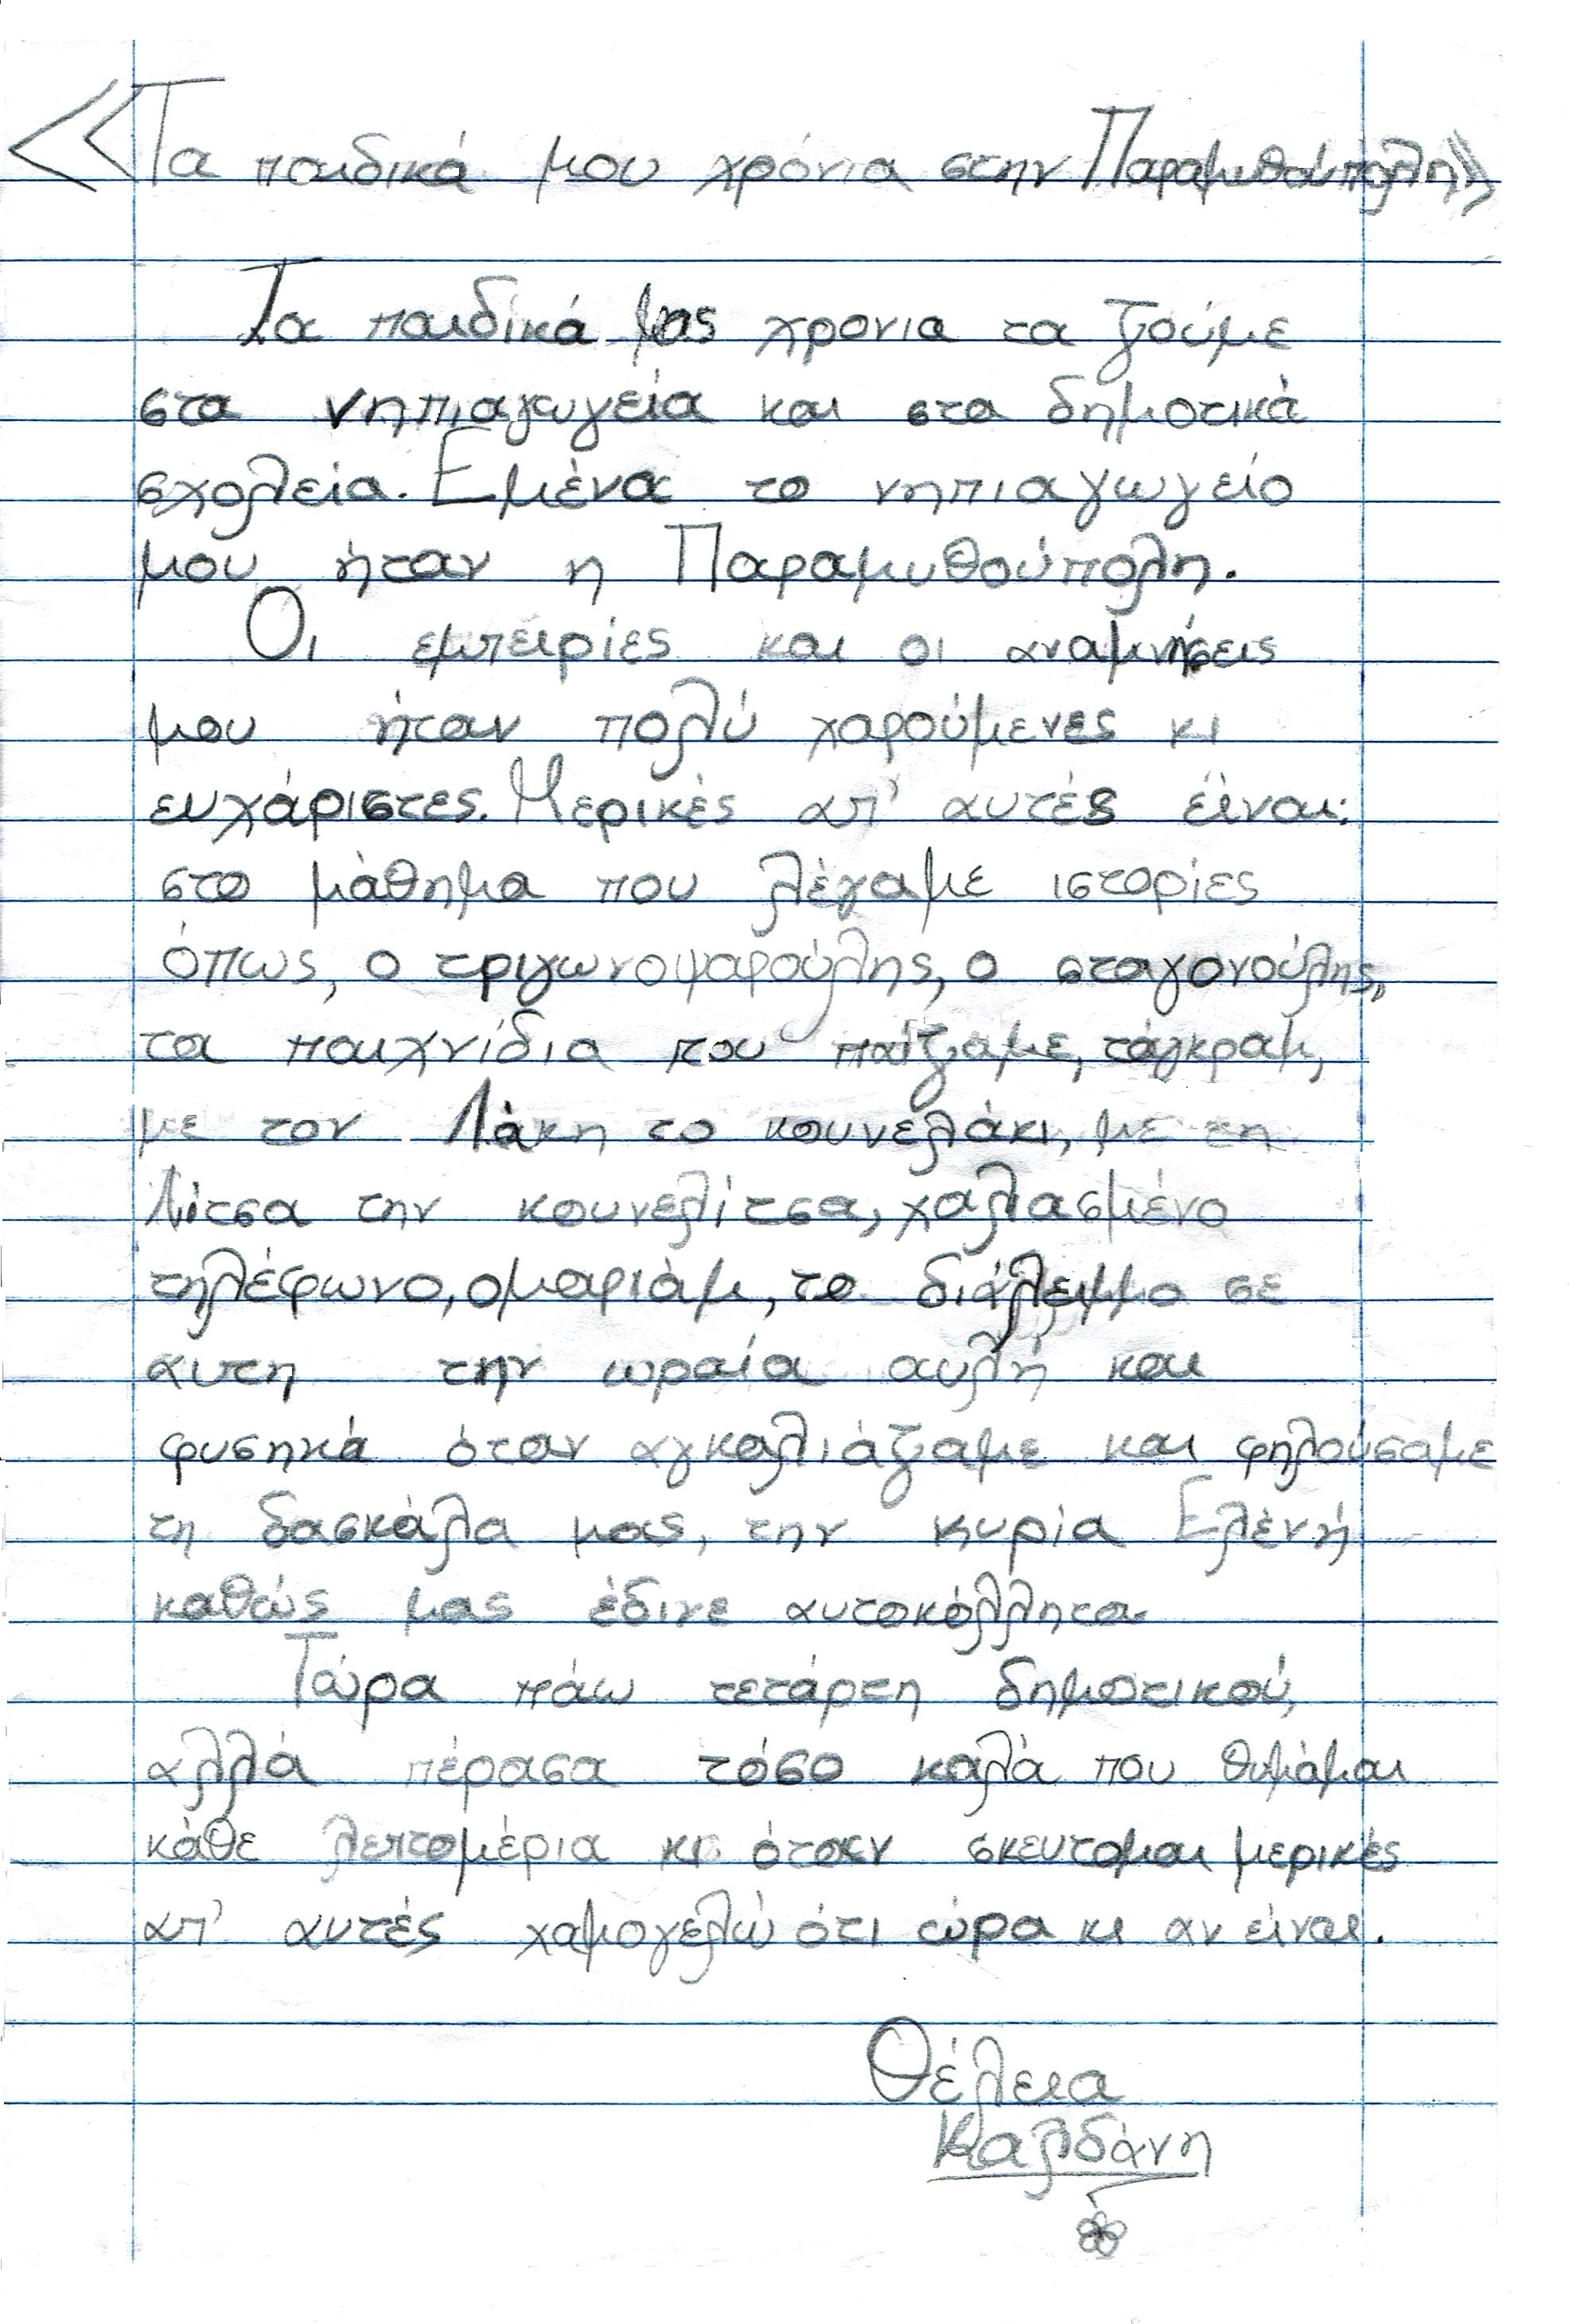 «Τα παιδικά μου χρόνια στην Παραμυθούπολη»
Τα παιδικά μας χρονια τα ζούμε
στα νηπιαγωγεία και στα δημοτικά
σχολεία. Εμένα το νηπιαγωγείο
μου ήταν η Παραμυθούπολη.
Οι εμπειρίες και οι αναμνήσεις
μου ήταν πολύ χαρούμενες κι
ευχάριστες. Μερικές απ' αυτές είναι:
στο μάθημα που λέγαμε ιστορίες
όπως, ο τριγωνοψαρούλης, ο σταγονούλης,
τα παιχνίδια που παίζαμε, τάγκραμ,
με τον Λάκη το κουνελάκι, με τη
Λίτσα την κουνελίτσα, χαλασμένο
τηλέφωνο, ομαριάμ, το διάλειμμα σε
αυτη την ωραία αυλή και
φυσηκά όταν αγκαλιάζαμε και φηλούσαμε
τη δασκάλα μας, την κυρία Ελένή
καθώς μας έδινε αυτοκόλλητα
Τώρα πάω τετάρτη δημοτικού,
αλλά πέρασα τόσο καλά που θυμάμαι
κάθε λεπτομέρια κι όταν σκευτομαι μερικές
απ' αυτές χαμογελώ ότι ώρα κι αν είναι.
Θέλεια
Καλιδάνη